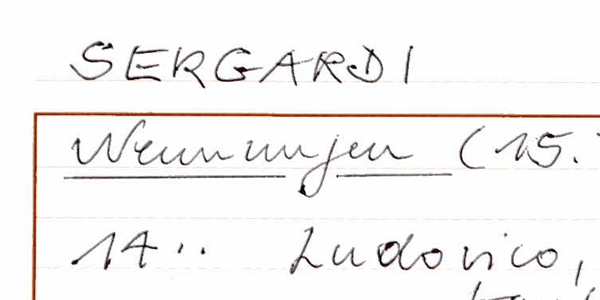 SERGARDI
Nennungen (15.
14.. Ludovico,